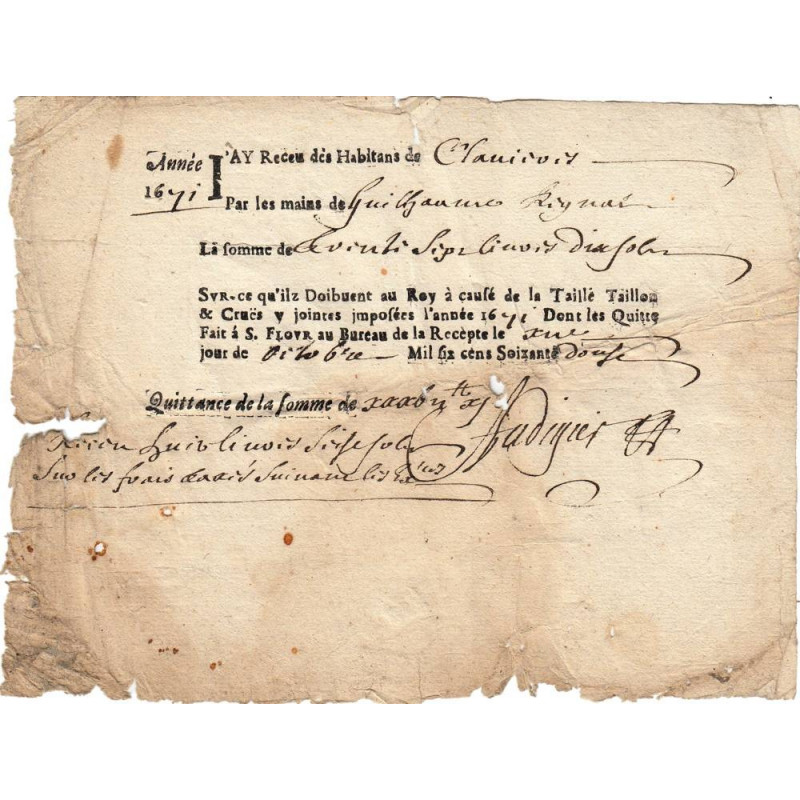 Année I'AY Receu dés Habitans de Clavieres
1671 Par les mains de Guilhaume Reynal
Lá somme de trente Sept livres dix sols
SVR-ce qu'ilz Doibuent au Roy à causé de la Taillé Taillon
& Cruës y jointes imposées l'année 1671 Dont les Quitte
Fait á S. FLOVR au Bureau de la Recèpte le
jour de octobre Mil six cens Soixanté douse
Quittance de la somme de xxxvii tt x s
Receu huict livres seise sols
Sur les frais taxés suivant les